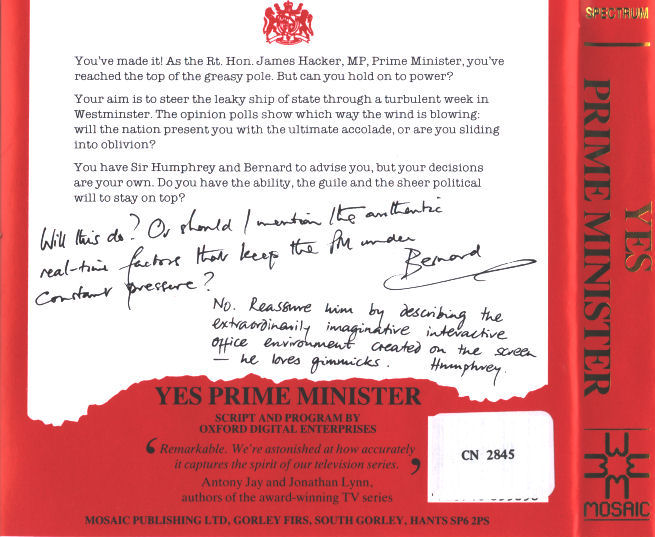 You've made it! As the Rt. Hon. James Hacker, MP, Prime Minister, you've
reached the top of the greasy pole. But can you hold on to power?
Your aim is to steer the leaky ship of state through a turbulent week in
Westminster. The opinion polls show which way the wind is blowing:
will the nation present you with the ultimate accolade, or are you sliding
into oblivion?
You have Sir Humphrey and Bernard to advise you, but your decisions
are your own. Do you have the ability, the guile and the sheer political
will to stay on top?
Will this do? Or should I mention the authentic
real-time factors that keep the PM under
constant pressure?
Bernard
No. Reassure him by describing the
extraordinarily imaginative interactive
office environment created on the screen
– he loves gimmicks. Humphrey.
YES PRIME MINISTER
SCRIPT AND PROGRAM BY
OXFORD DIGITAL ENTERPRISES
‘Remarkable. We're astonished at how accurately
it captures the spirit of our television series.’
Antony Jay and Jonathan Lynn,
authors of the award-winning TV series
CN 2845
MOSAIC PUBLISHING LTD, GORLEY FIRS, SOUTH GORLEY, HANTS SP6 2PS
SPECTRUM
YES
PRIME MINISTER
MOSAIC